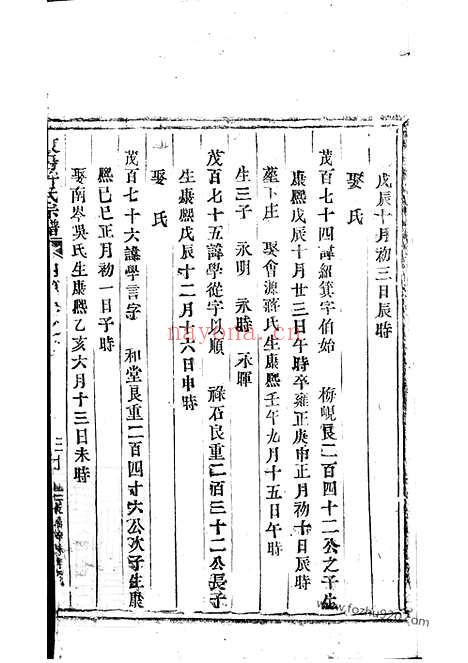 戊辰十月初三日辰時
娶氏
茂百七十四諱紹箕字伯始 梅峴艮二百四十二公之子生
康熙戊辰十月廿三日午時卒雍正庚申正月初十日辰時
墓下庄 娶會源蔣氏生康熙壬午九月十五日午時
生三子 永明 永時 永暉
茂百七十五諱學從字以順 祿石艮重二百三十二公長子
生康熙戊辰十二月十六日申時
娶氏
茂百七十六諱學言字 和堂艮重二百四十六公次子生康
熙己巳正月初一日子時
娶南岑吳氏生康熙乙亥六月十三日未時
許氏宗譜
nayona.cn
www.fozhu920.com